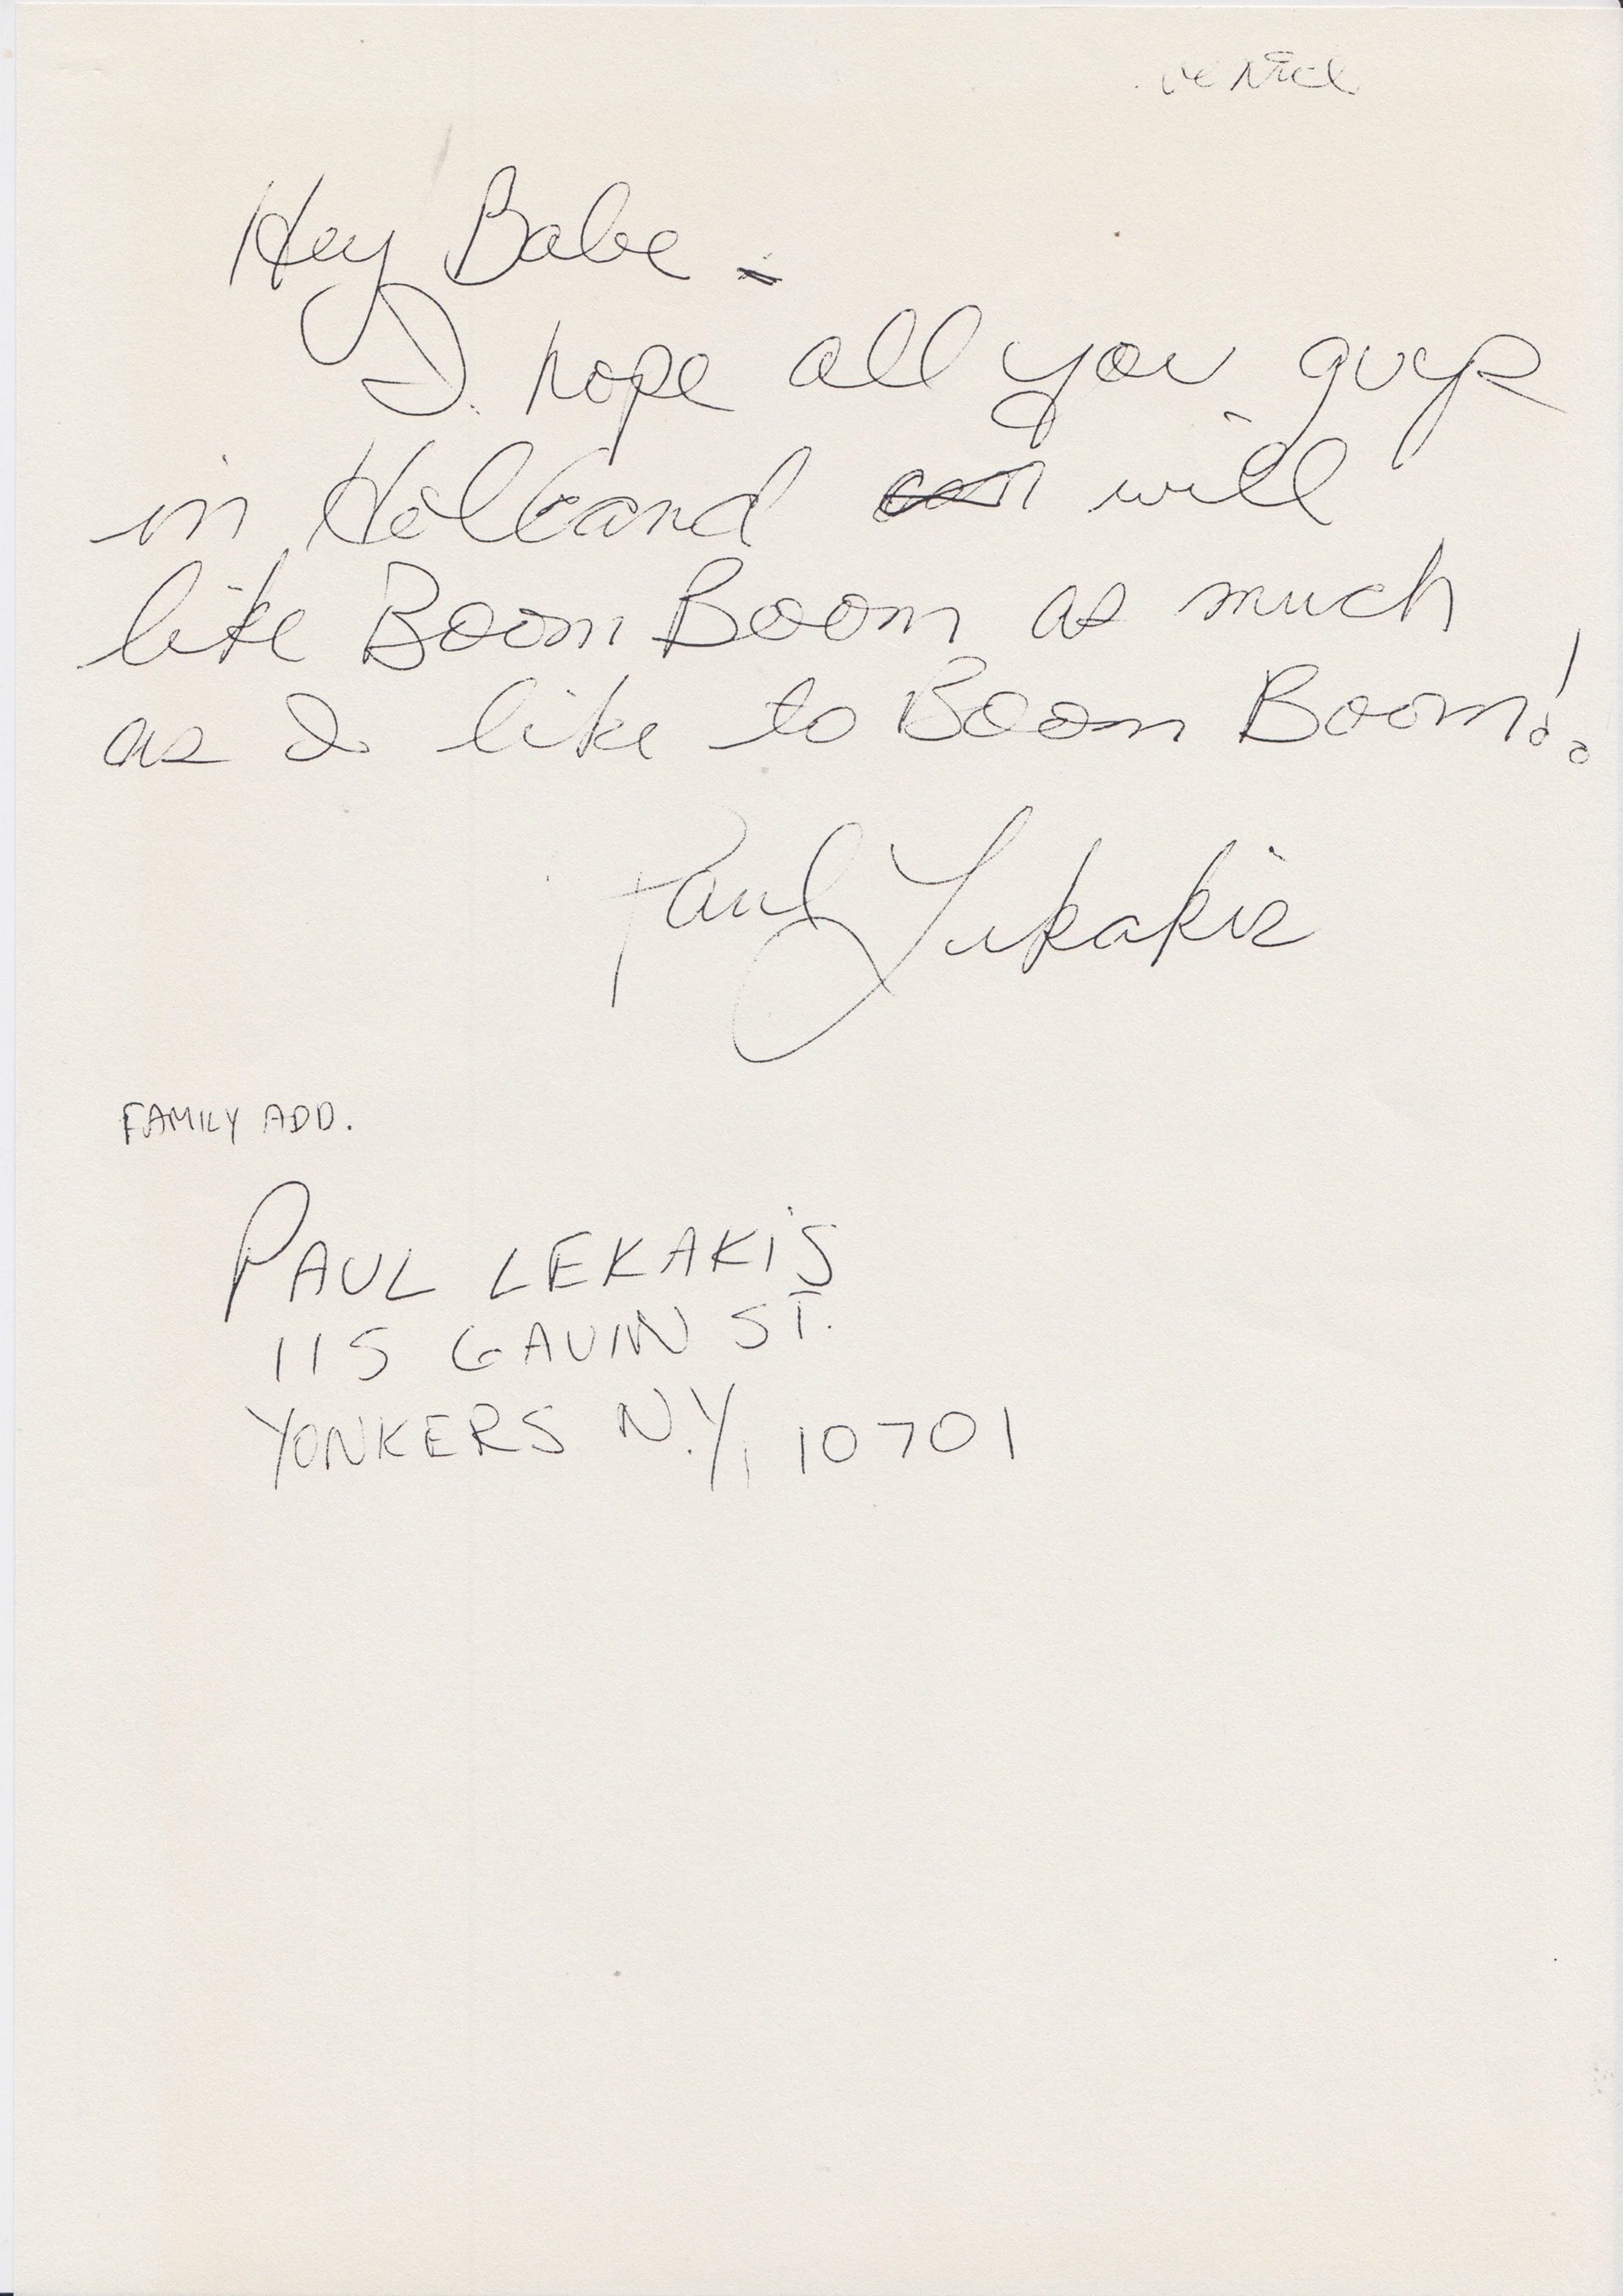 Hey Babe -
I hope all you guys
in Holland will
like Boom Boom as much
as I like to Boom Boom!!
Paul Lekakis
FAMILY ADD.
PAUL LEKAKIS
115 GAVIN ST.
YONKERS N.Y, 10701